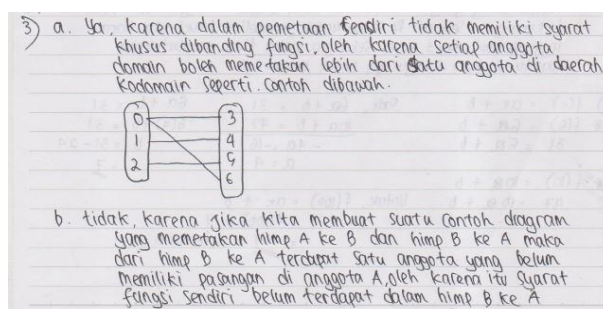 3) a. Ya, karena dalam pemetaan sendiri tidak memiliki syarat
khusus dibanding fungsi, oleh karena setiap anggota
domain boleh memetakan lebih dari satu anggota di daerah
kodomain seperti contoh dibawah.
0 3
1 4
2 5
6
b. tidak, karena jika kita membuat suatu contoh diagram
yang memetakan himp A ke B dan himp B ke A maka
dari himp B ke A terdapat satu anggota yang belum
memiliki pasangan di anggota A, oleh karena itu syarat
fungsi sendiri belum terdapat dalam himp B ke A